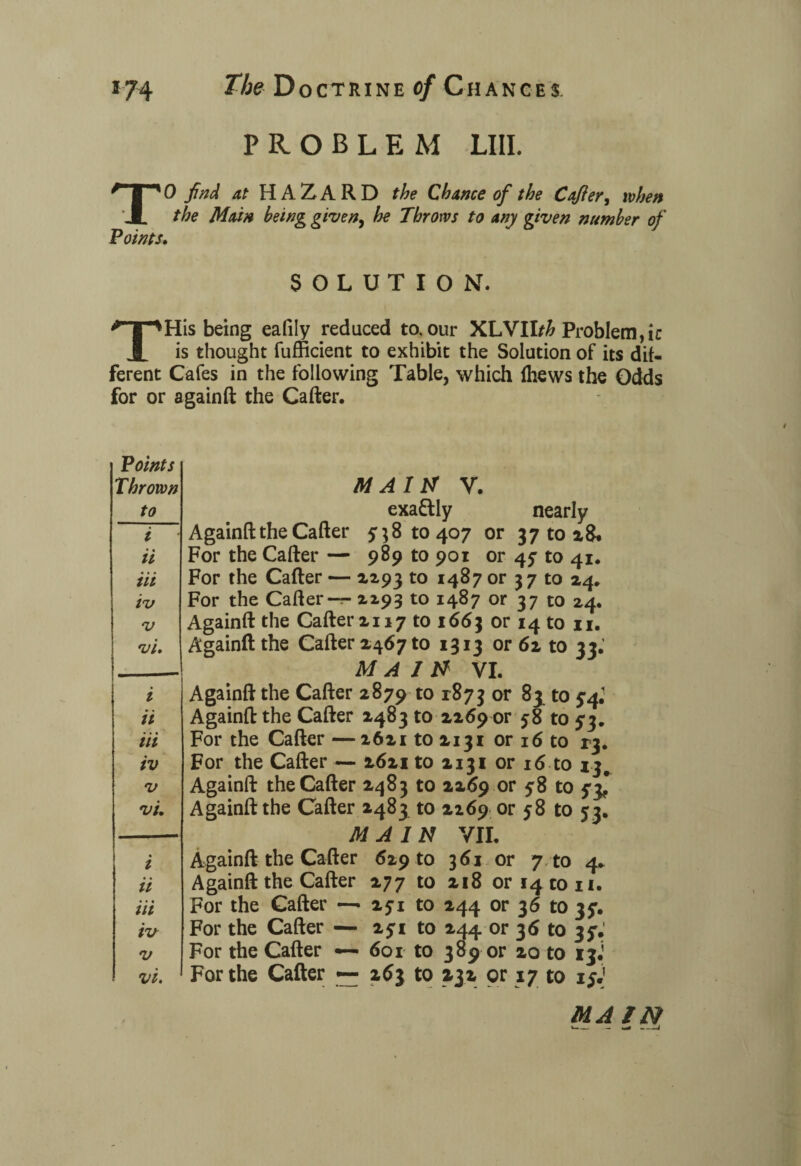 174 The DOCTRINE of CHANCES.
PROBLEM LIII.
TO find at HAZARD the Chance of the Caſter, when
the Main being given, he Throws to any given number of
Points.
SOLUTION.
THis being eaſily reduced to our XLVIIth Problem, it
is thought ſufficient to exhibit the Solution of its dif-
ferent Caſes in the following Table, which ſhews the Odds
for or againſt the Caſter.
Points
Thrown
to
MAIN V.
exactly nearly
i Againſt the Caſter 538 to 407 or 37 to 28.
ii For the Caſter — 989 to 901 or 45 to 41.
iii For the Caſter — 2293 to 1487 or 37 to 24.
iv For the Caſter — 2293 to 1487 or 37 to 24.
v Againſt the Caſter 2117 to 1663 or 14 to 11.
vi. Againſt the Caſter 2467 to 1313 or 62 to 33.
MAIN VI.
i Againſt the Caſter 2879 to 1873 or 83 to 54.
ii Againſt the Caſter 2483 to 2269 or 58 to 53.
iii For the Caſter — 2621 to 2131 or 16 to 13.
iv For the Caſter — 2621 to 2131 or 16 to 13.
v Againſt the Caſter 2483 to 2269 or 58 to 53.
vi. Againſt the Caſter 2483 to 2269 or 58 to 53.
MAIN VII.
i Againſt the Caſter 629 to 361 or 7 to 4.
ii Againſt the Caſter 277 to 218 or 14 to 11.
iii For the Caſter — 251 to 244 or 36 to 35.
iv For the Caſter — 251 to 244 or 36 to 35.
v For the Caſter — 601 to 389 or 20 to 13.
vi. For the Caſter — 263 to 232 or 17 to 15.
MAIN